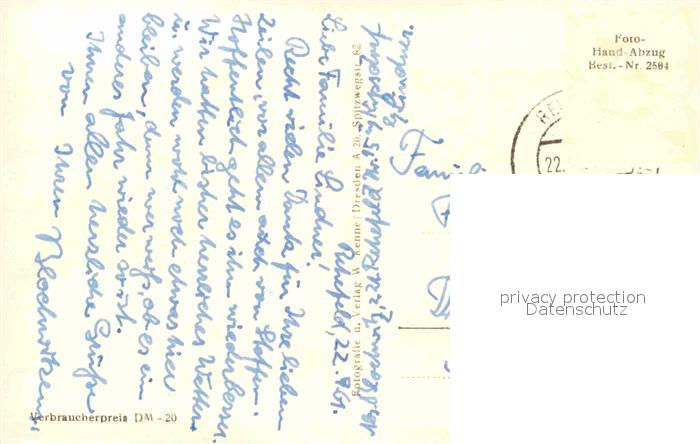 Foto-
Hand-Abzug
Best.-Nr. 2504
22.
Rehefeld, 22. 7. 61.
Liebe Familie Lindner,
Recht vielen Dank für Ihre lieben
Zeilen, vor allem auch von Steffen.
Hoffentlich geht es ihm wieder besser.
Wir hatten bisher herrliches Wetter
u. werden wohl noch etwas hier
bleiben, denn wer weiß ob es ein
anderes Jahr wieder wird.
Ihnen allen herzliche Grüße
von Ihren
Fotografie u. Verlag W. Kenne/Dresden A 20, Spitzwegstr. 82
Famili
privacy protection
Datenschutz
Verbraucherpreis DM -20